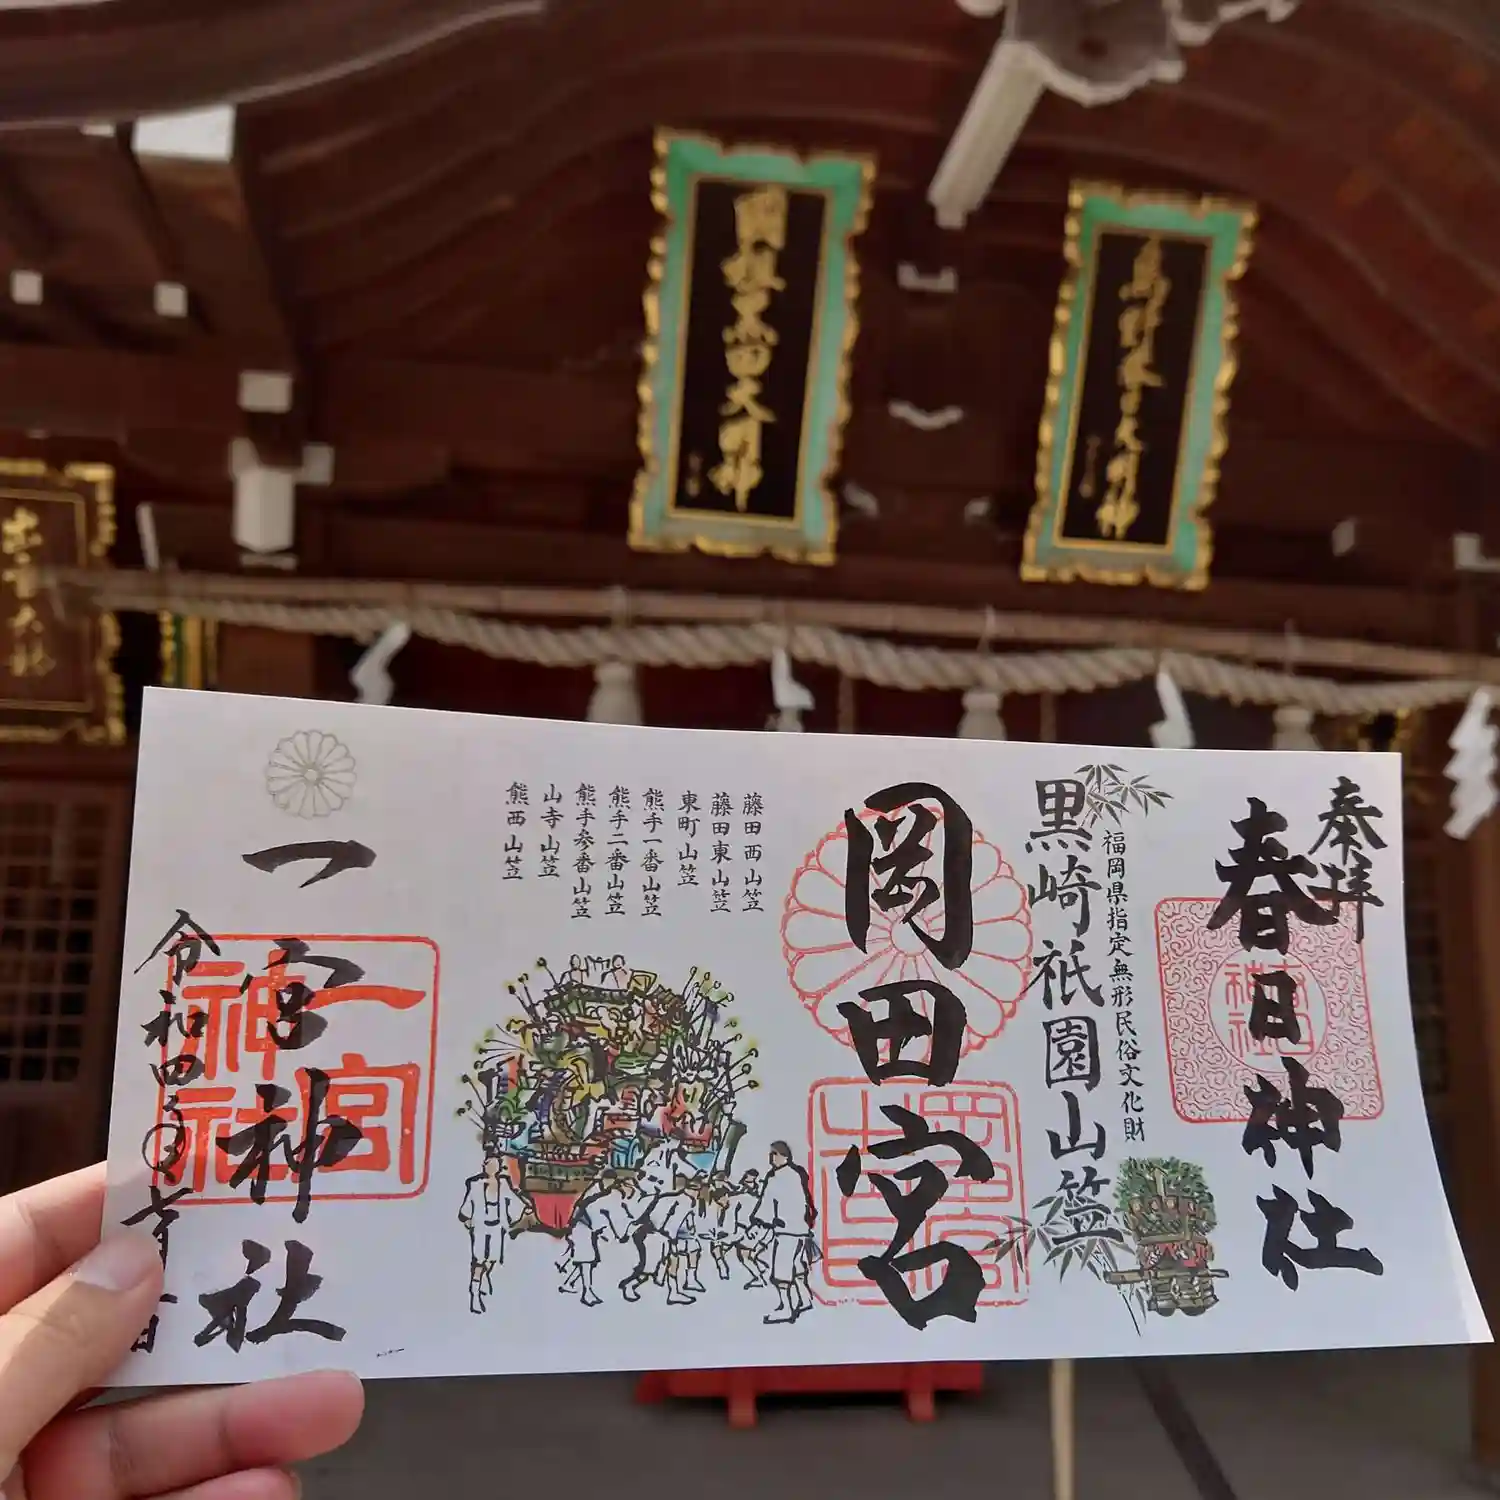 國祖黒田大明神
奉拝
春日神社
福岡県指定無形民俗文化財
黒崎祇園山笠
岡田宮
岡田宮
藤田西山笠
藤田東山笠
東町山笠
熊手一番山笠
熊手二番山笠
熊手参番山笠
山寺山笠
熊西山笠
一宮神社
一宮
神社
令和四年